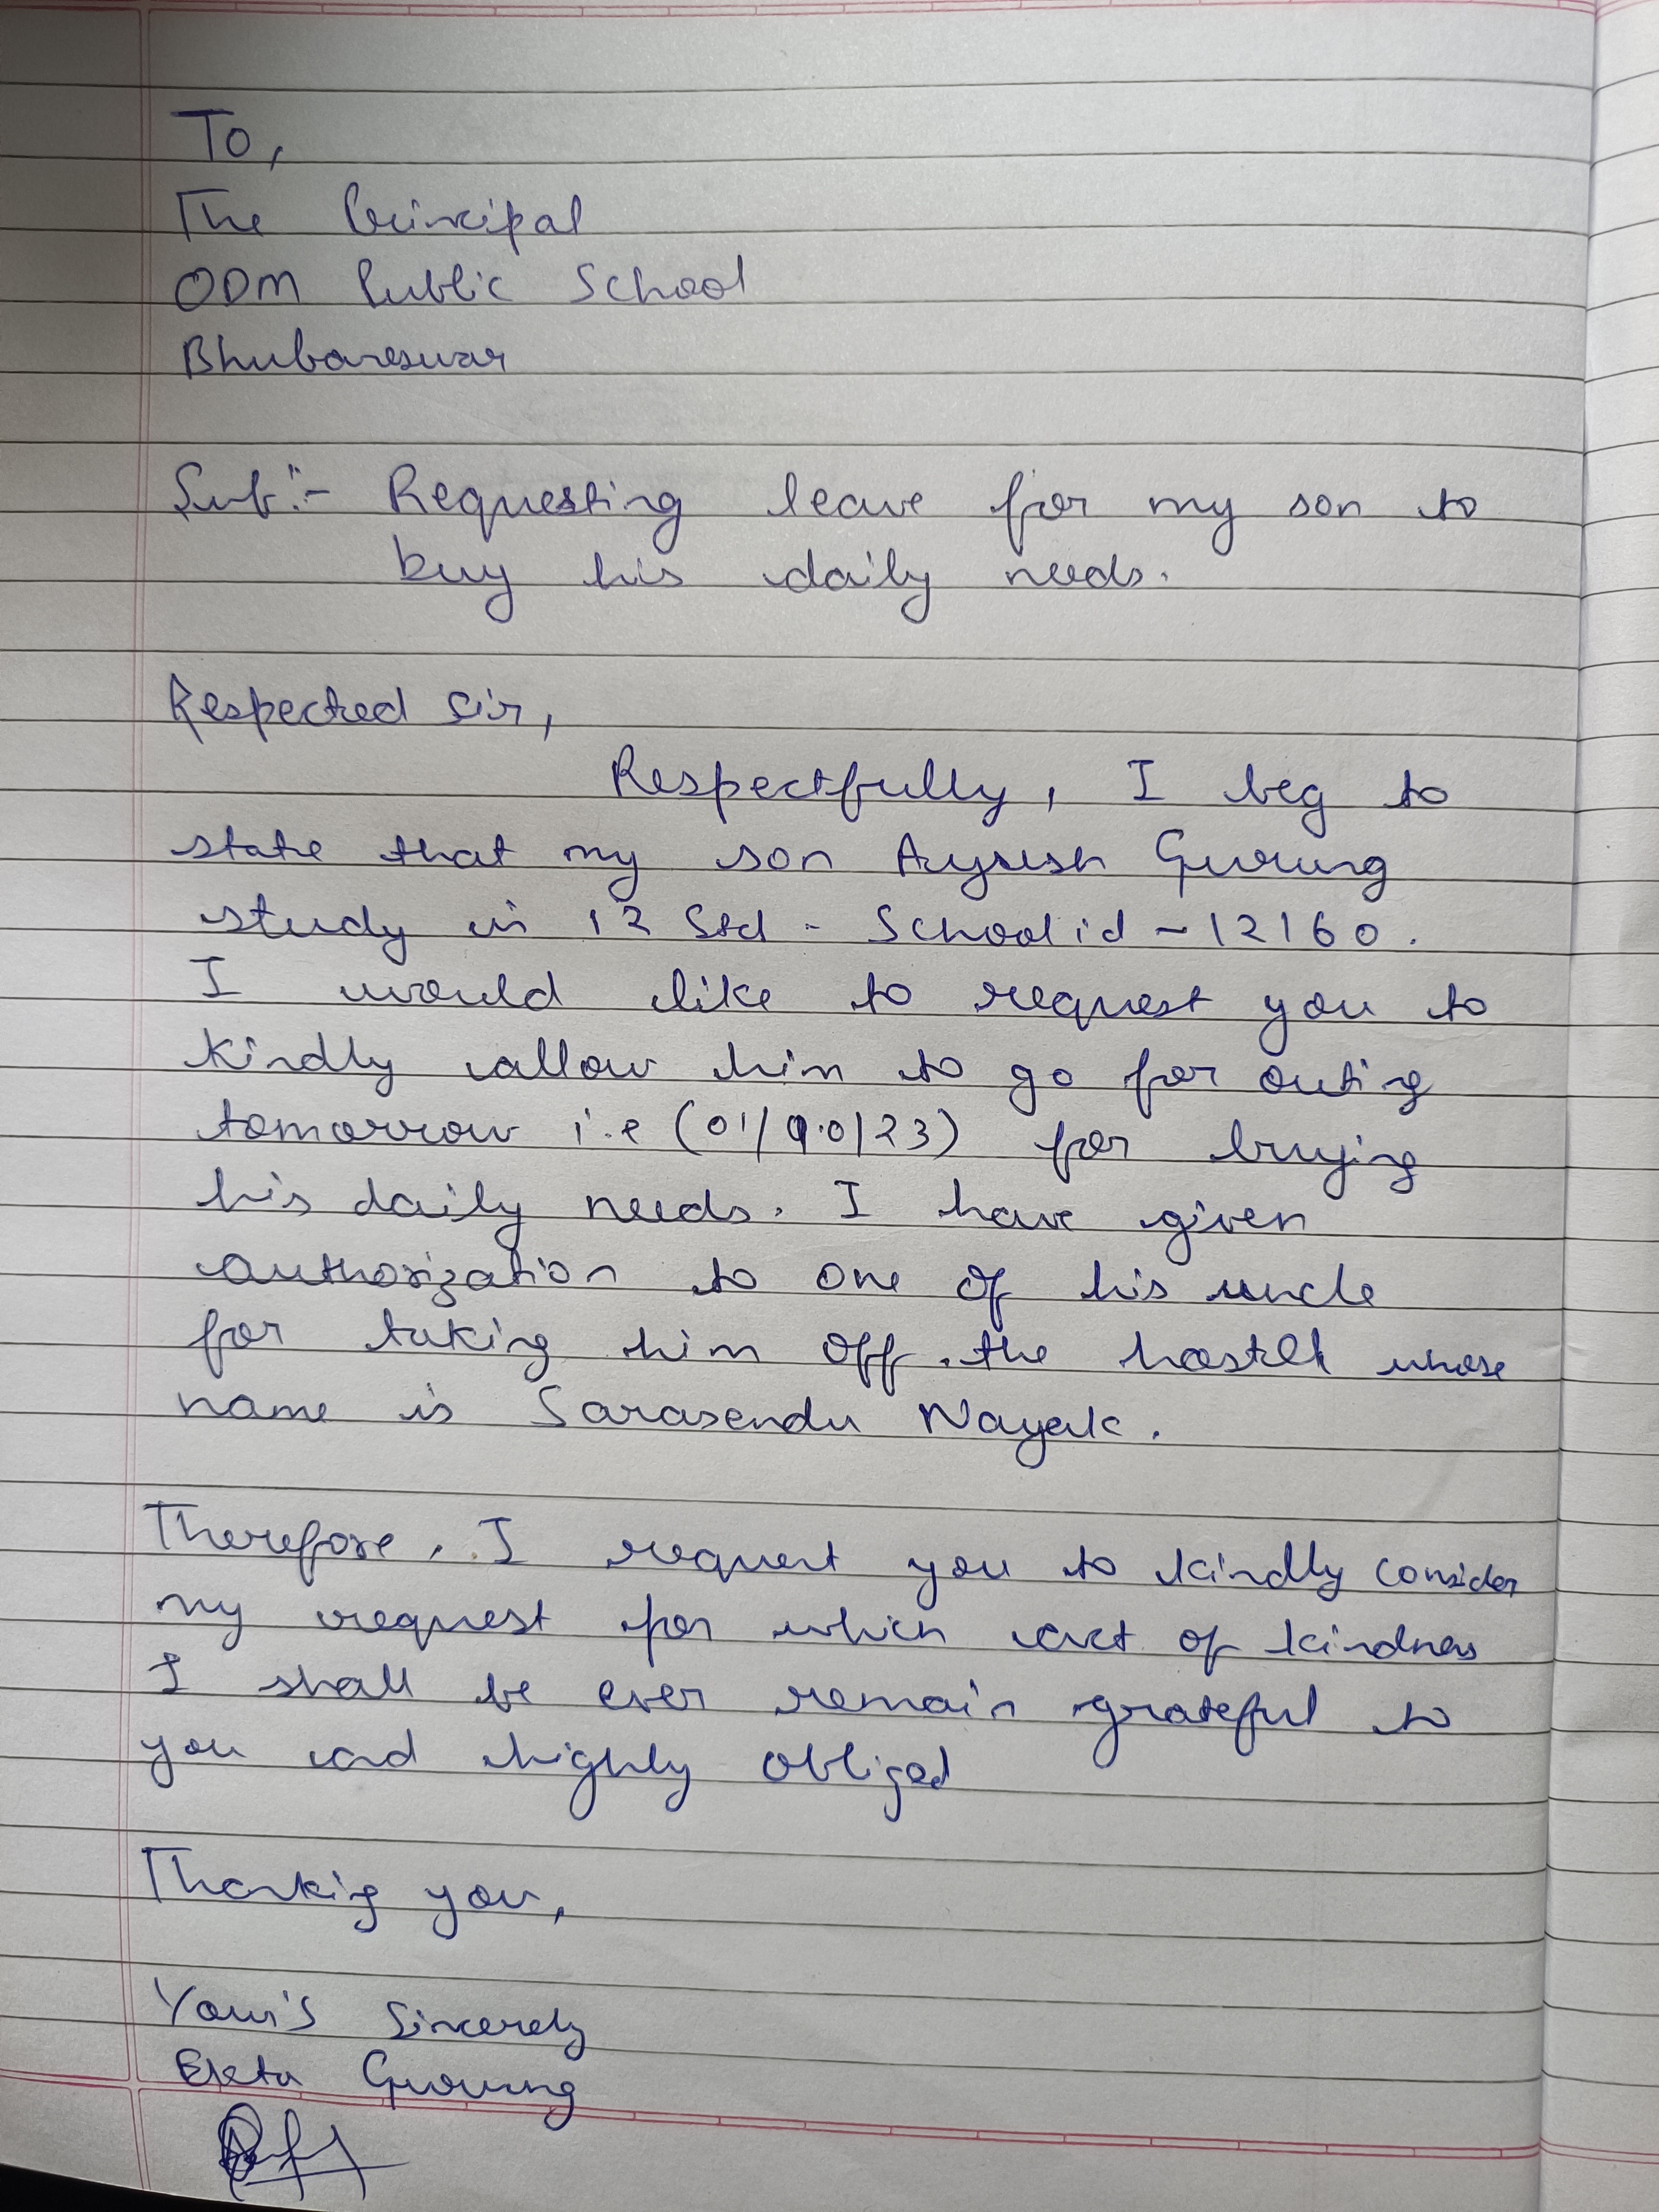 To,
The Principal
ODM Public School
Bhubaneswar
Sub:- Requesting leave for my son to
buy his daily needs.
Respected Sir,
Respectfully, I beg to
state that my son Gurung
study in 12 Std - School id - 12160.
I would like to request you to
kindly allow him to go for outing
tomorrow i.e (01/10/23) for buying
his daily needs. I have given
authorization to one of his uncle
for taking him off the hostel whose
name is Sarasendu Nayak.
Therefore, I request you to kindly consider
my request for which act of kindness
I shall be ever remain grateful to
you and highly obliged
Thanking you,
Your's Sincerely
Ekta Gurung